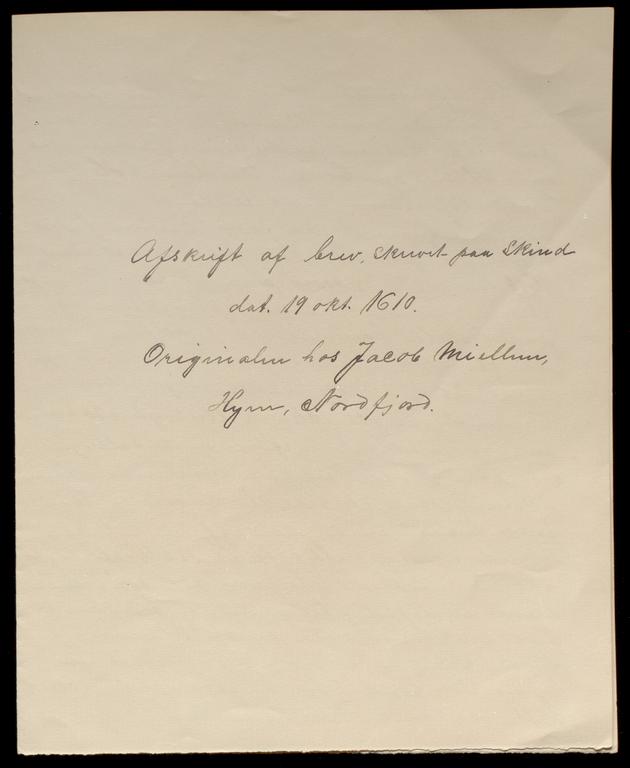 Afskrift af brev, skrevet paa Skind
dat. 19 okt. 1610.
Originalen hos Jacob Miellem,
Hyen, Nordfjord.